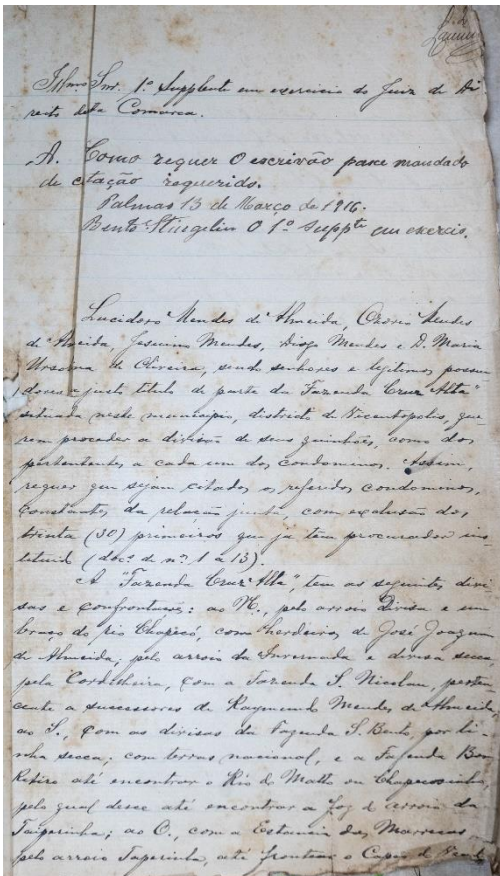 Illmo Snr. 1º Supplente em exercicio do Juiz de Di
reito desta Comarca.
A. Como requer O escrivão passe mandado
de citação requerido.
Palmas 13 de Março de 1916.
Bento O 1º Suppte em exercic.
Lucidoro Mendes de Almeida, Ozorio Mendes
de Almeida, Jesuino Mendes, Diogo Mendes e D. Maria
Ursolina de Oliveira, sendo senhores e legitimos possui
dores a justo titulo de parte da Fazenda "Cruz Alta"
situada neste municipio, districto de Vicentopolis, que
rem proceder a divisão de seus quinhões, como dos
pertententes a cada um dos condominos. Assim,
requer que sejam citados os referidos condominos,
constantes da relação junta, com exclusão dos
trinta (30) primeiros que ja tem procurador ins
tituid (docs. de nº. 1 a 13).
A "Fazenda Cruz Alta", tem as seguintes divi
sas e confrontações: ao N., pelo arroio Divisa e um
braço do rio Chapecó, com herdeiros de José Joaquim
de Almeida; pelo arroio da Invernada e divisa secca
pela Cordilheira, com a Fazenda S. Nicolau, perten
cente a successores de Raymundo Mendes de Almeida,
ao S., com as divisas da Fazenda S. Bento, por li
nha secca; com terras nacional, e a Fazenda Bom
Retiro até encontrar o Rio do Matto ou Chapecosinho,
pelo qual desce até encontrar a foz do arroio da
Taiperinha; ao O., com a Estancia das Marrecas,
pelo arroio Taperinha, até frontear o Capão do